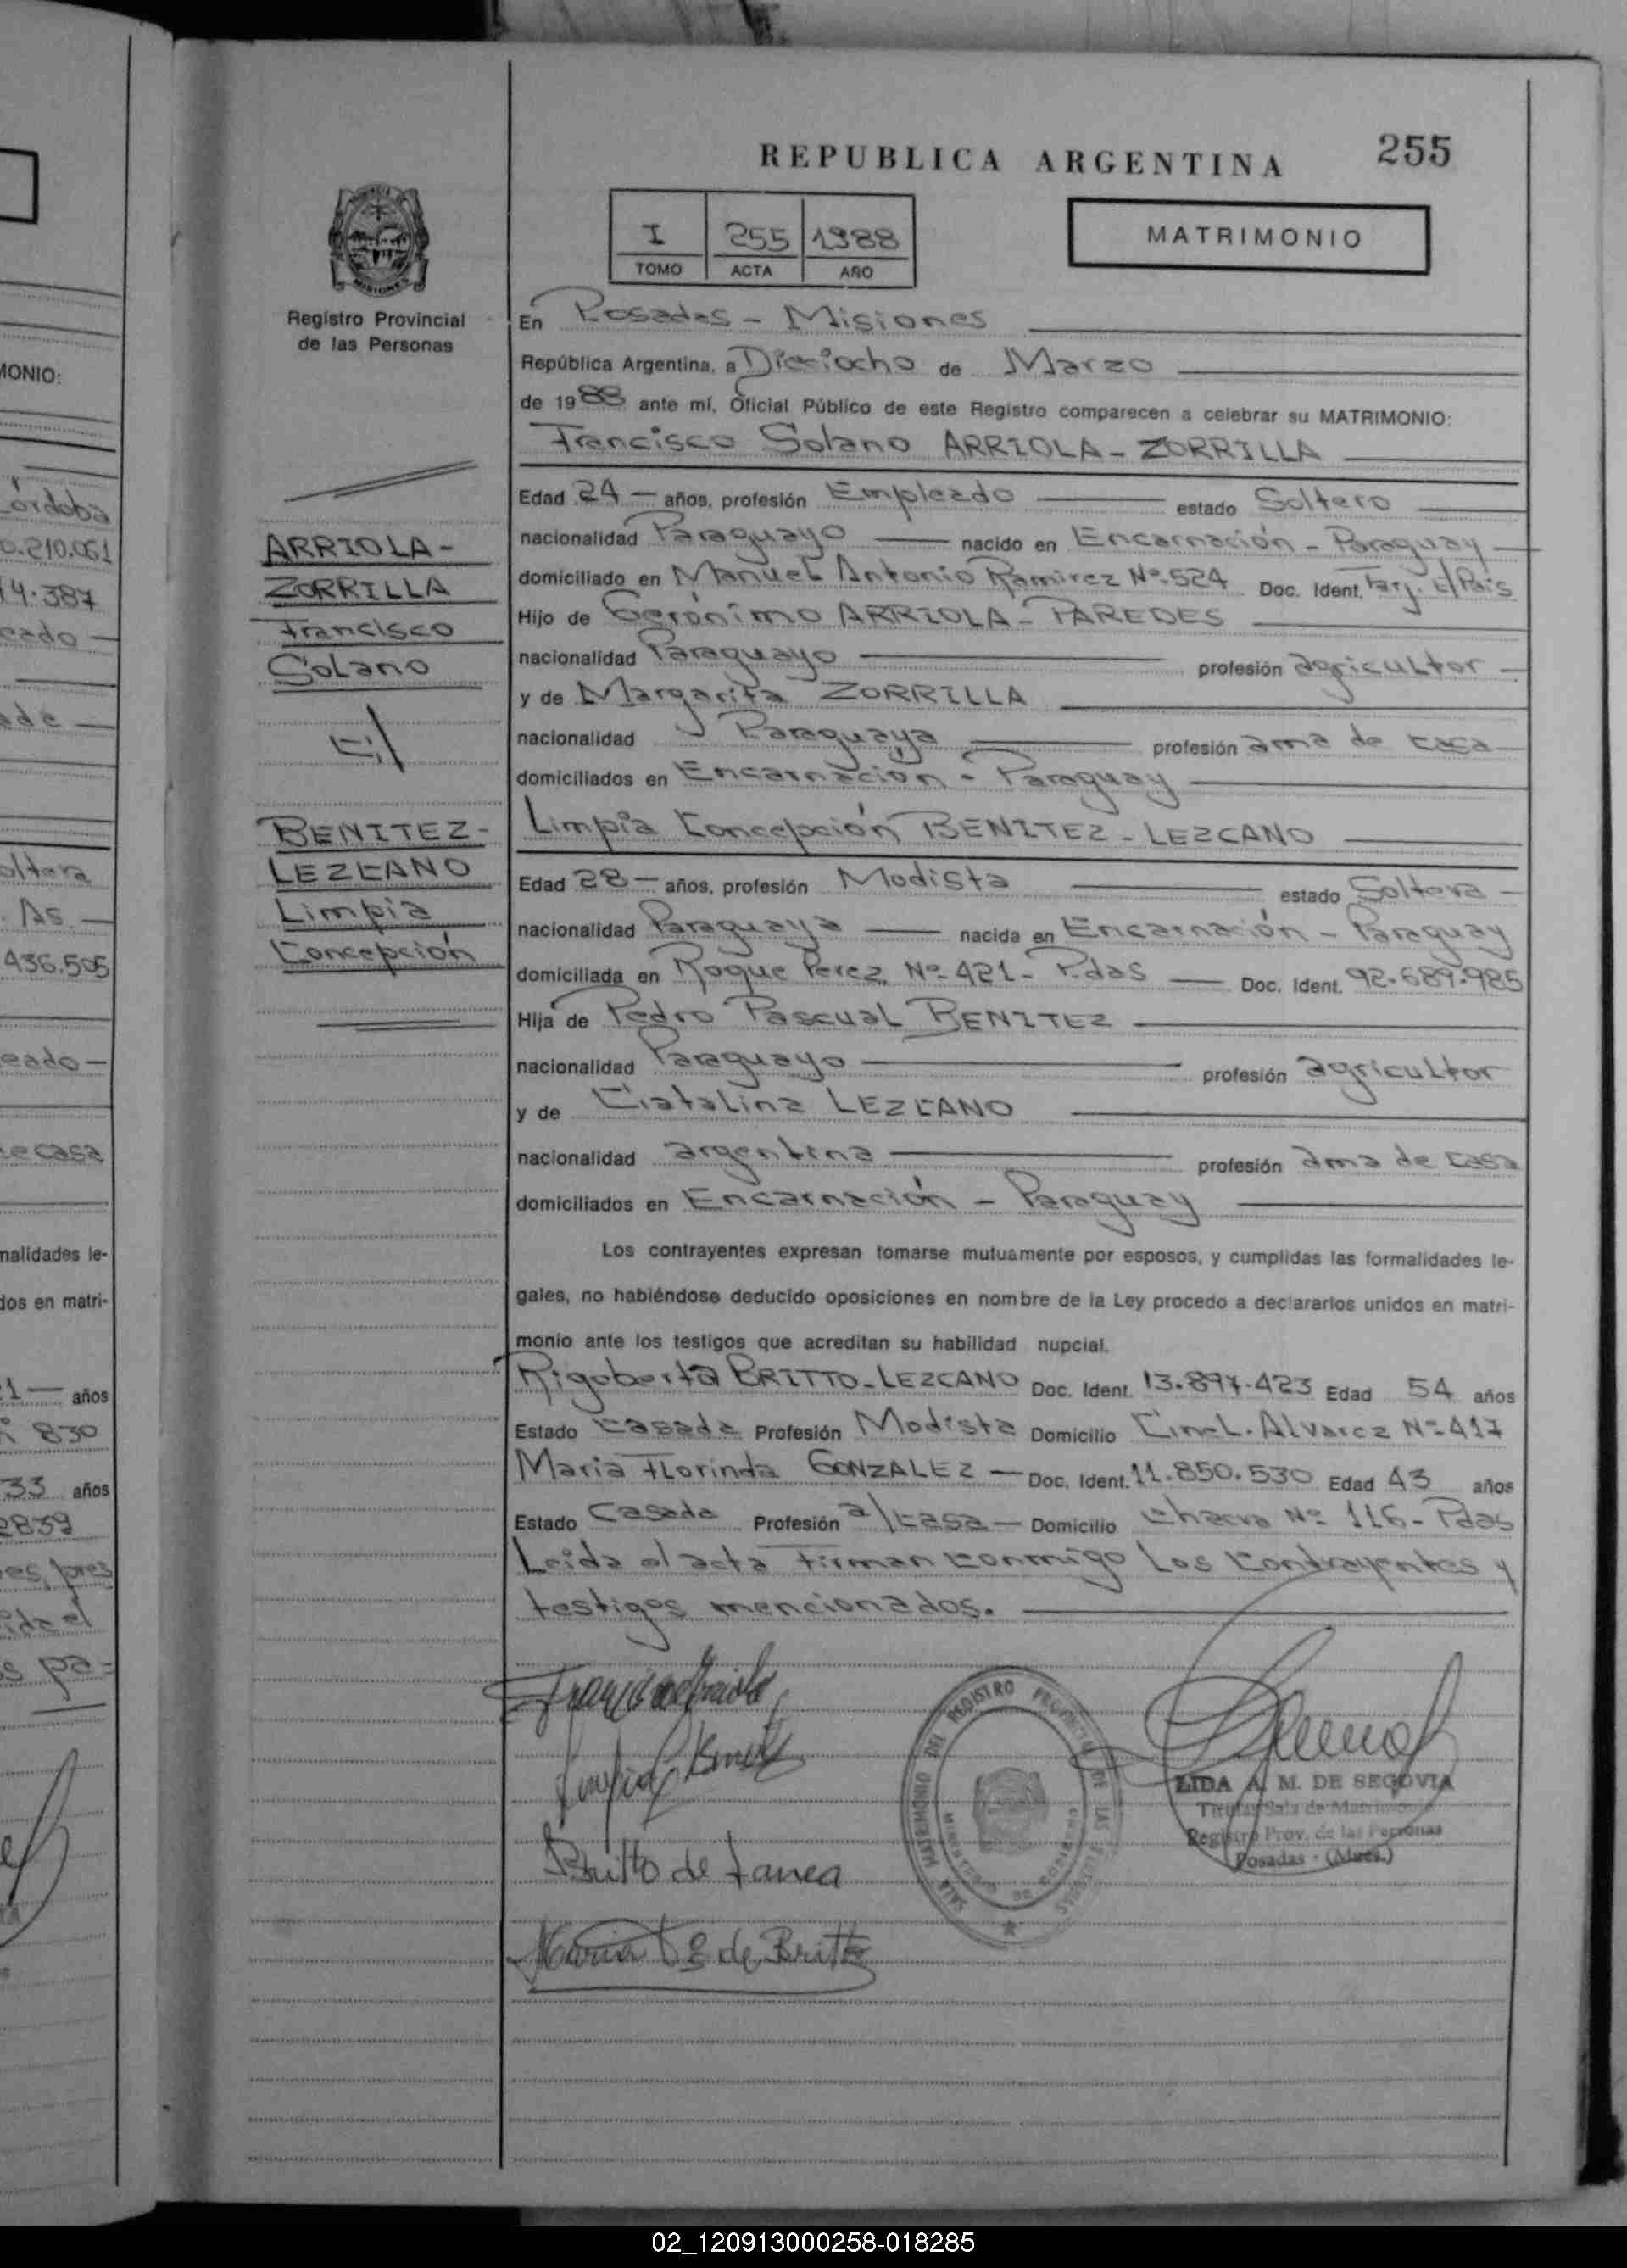 255
REPUBLICA ARGENTINA
MATRIMONIO
I 255 1988
TOMO ACTA AÑO
Registro Provincial
de las Personas
En Posadas - Misiones
República Argentina, a Dieciocho de Marzo
de 1988 ante mí, Oficial Público de este Registro comparecen a celebrar su MATRIMONIO:
Francisco Solano ARRIOLA - ZORRILLA
Edad 24 - años, profesión Empleado estado Soltero
nacionalidad Paraguayo nacido en Encarnación - Paraguay
domiciliado en Manuel Antonio Ramirez Nº 524 Doc. Ident. Tarj. E/País
Hijo de Gerónimo ARRIOLA - PAREDES
nacionalidad Paraguayo profesión agricultor
y de Margarita ZORRILLA
nacionalidad Paraguaya profesión ama de casa
domiciliados en Encarnación - Paraguay
Limpia Concepción BENITEZ - LEZCANO
Edad 28 - años, profesión Modista estado Soltera
nacionalidad Paraguaya nacida en Encarnación - Paraguay
domiciliada en Roque Perez Nº 421 - Pdas Doc. Ident. 92.689.985
Hija de Pedro Pascual BENITEZ
nacionalidad Paraguayo profesión agricultor
y de Ciatalina LEZCANO
nacionalidad argentina profesión ama de casa
domiciliados en Encarnación - Paraguay
Los contrayentes expresan tomarse mutuamente por esposos, y cumplidas las formalidades le-
gales, no habiéndose deducido oposiciones en nombre de la Ley procedo a declararlos unidos en matri-
monio ante los testigos que acreditan su habilidad nupcial.
Rigoberta BRITTO - LEZCANO Doc. Ident. 13.897.423 Edad 54 años
Estado Casada Profesión Modista Domicilio Cnel. Alvarez Nº 417
Maria Florinda GONZALEZ - Doc. Ident. 11.850.530 Edad 43 años
Estado Casada Profesión a/casa - Domicilio Chacra Nº 116 - Pdas
Leida el acta firman conmigo los contrayentes y
testigos mencionados.
ARRIOLA -
ZORRILLA
Francisco
Solano
BENITEZ -
LEZCANO
Limpia
Concepción
Britto de
Maria de Britto
SALA MATRIMONIO DEL REGISTRO PROVINCIAL DE LAS PERSONAS
MINISTERIO DE GOBIERNO
LIDA A. M. DE SEGOVIA
Titular Sala de Matrimonio
Registro Prov. de las Personas
Posadas - (Mnes.)
MONIO:
Córdoba
0.210.061
14.387
eado -
ade
oltera
Bs. As.
436.505
eado -
de casa
malidades le-
dos en matri-
21 - años
830
33 años
2839
pa-
02_120913000258-018285